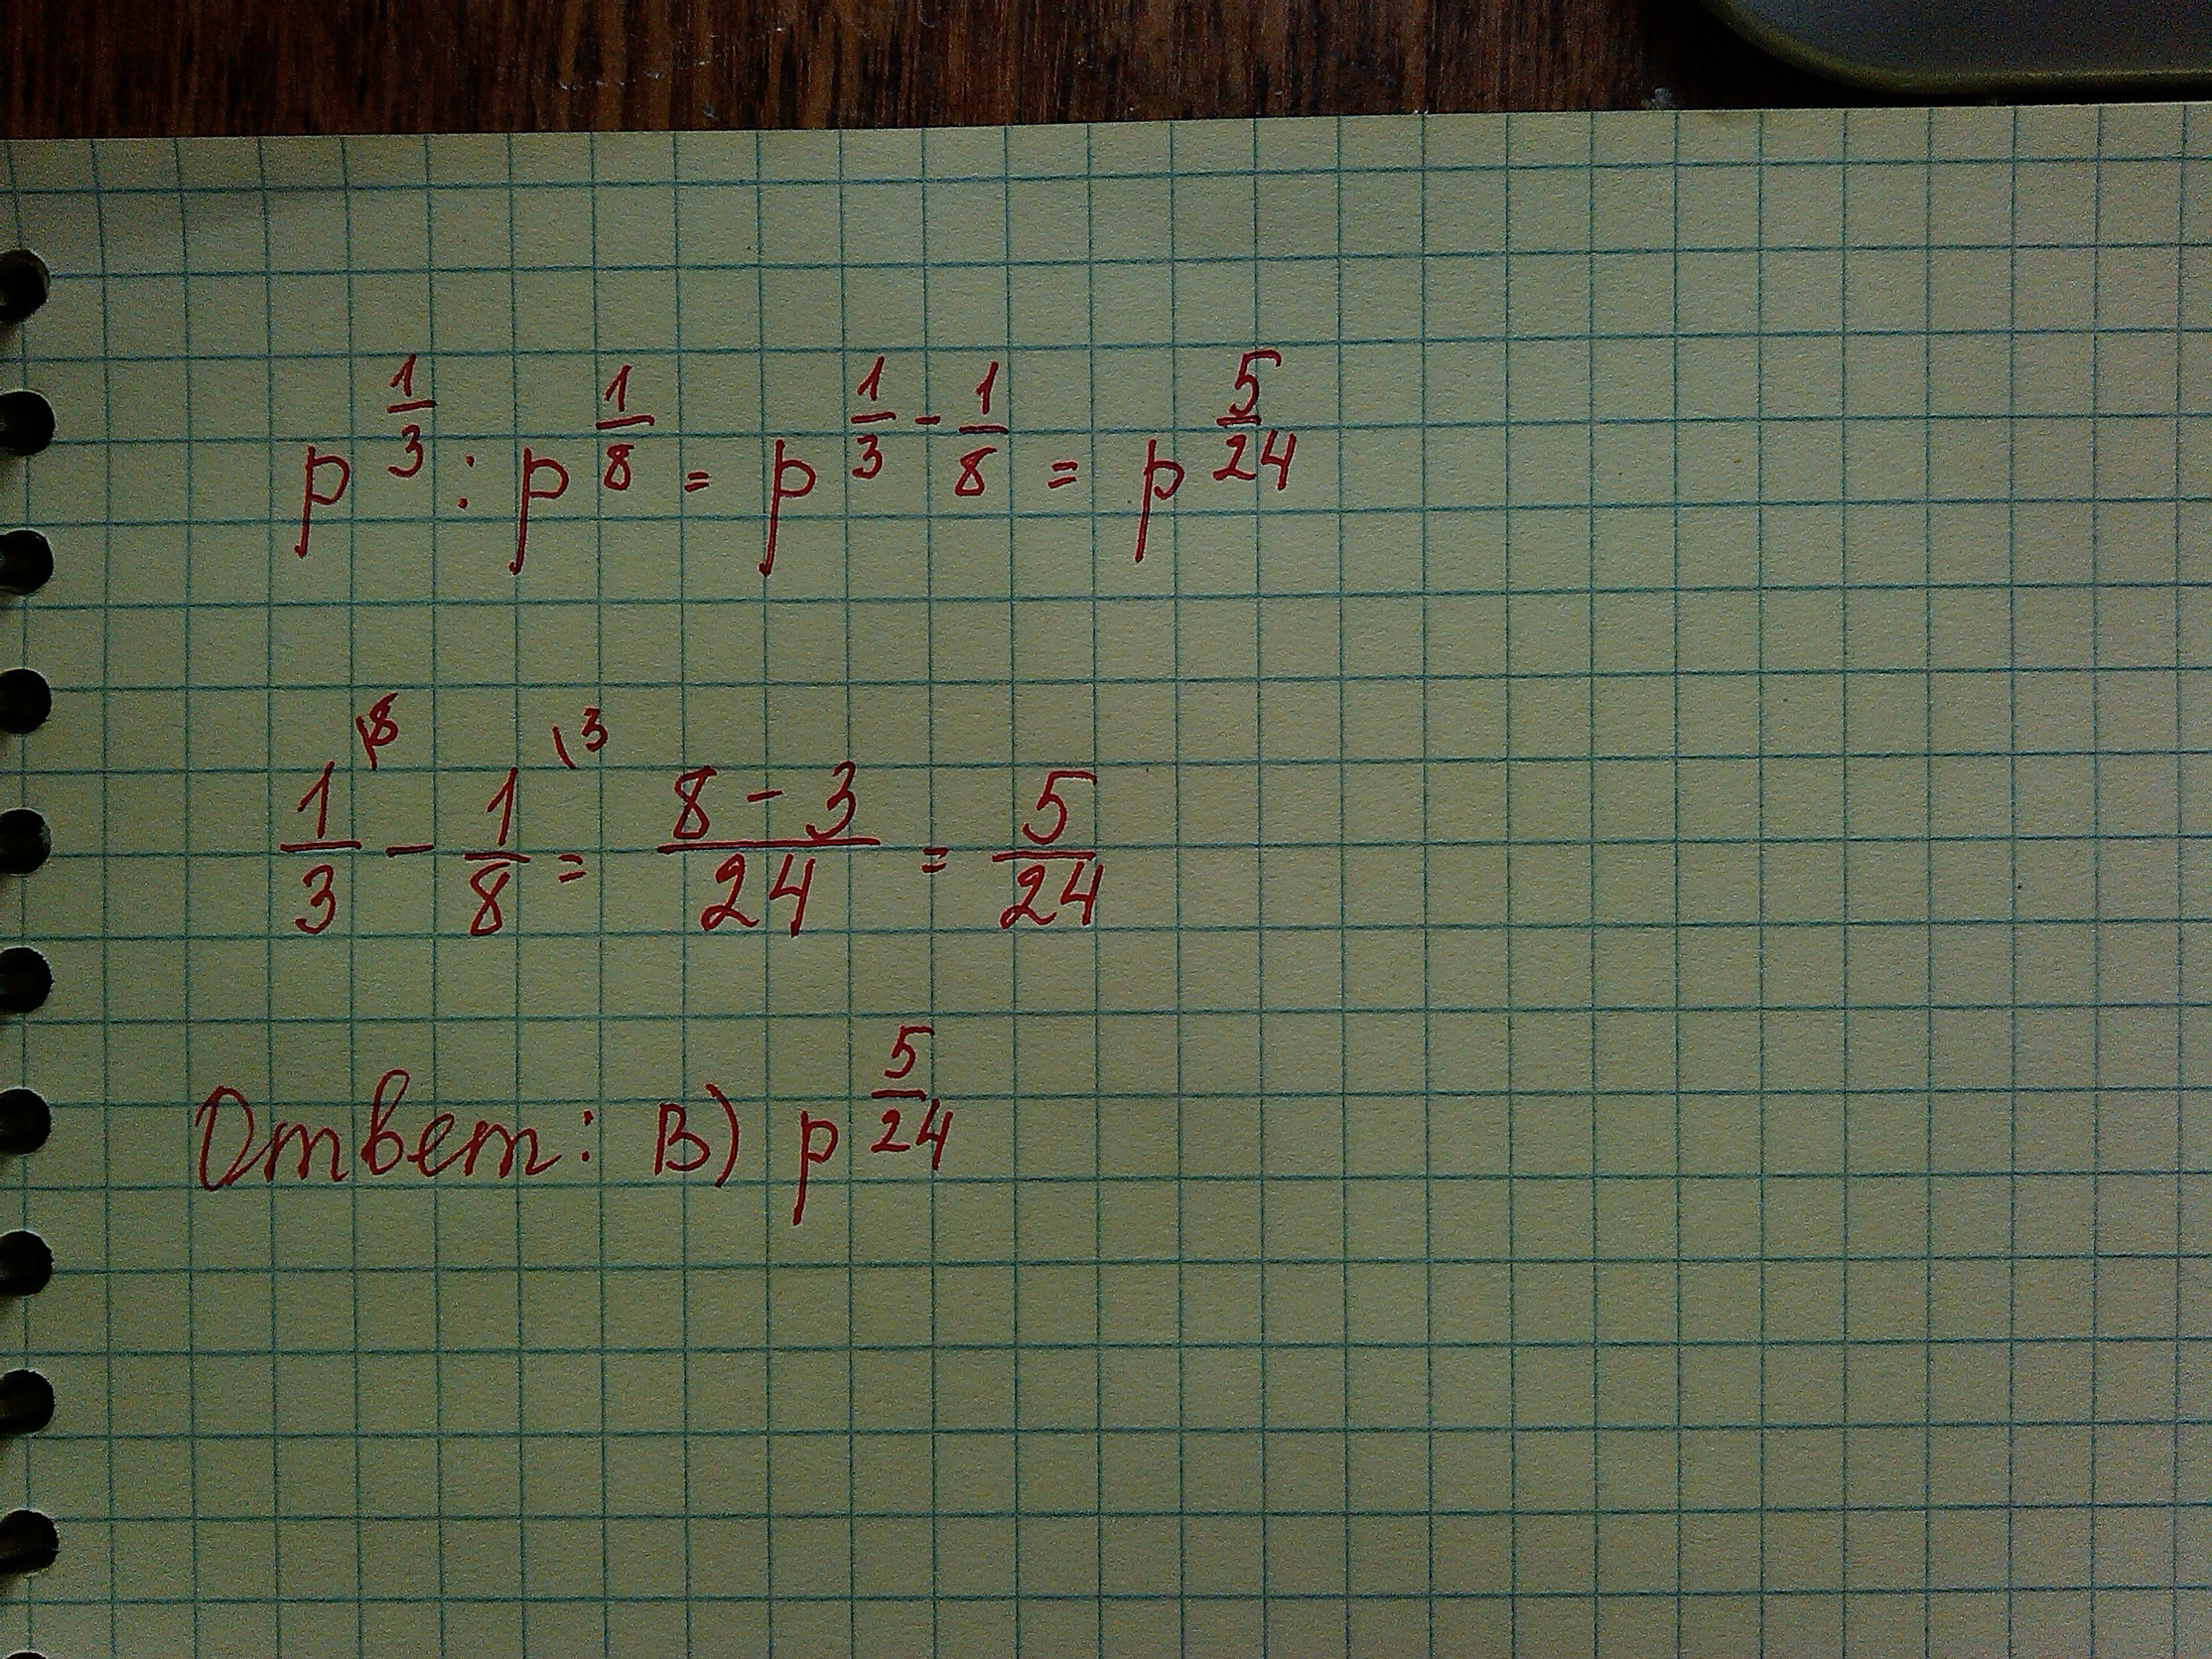 p^(1/3) : p^(1/8) = p^(1/3 - 1/8) = p^(5/24)
1/3 \8 - 1/8 \3 = (8 - 3)/24 = 5/24
Ответ: В) p^(5/24)